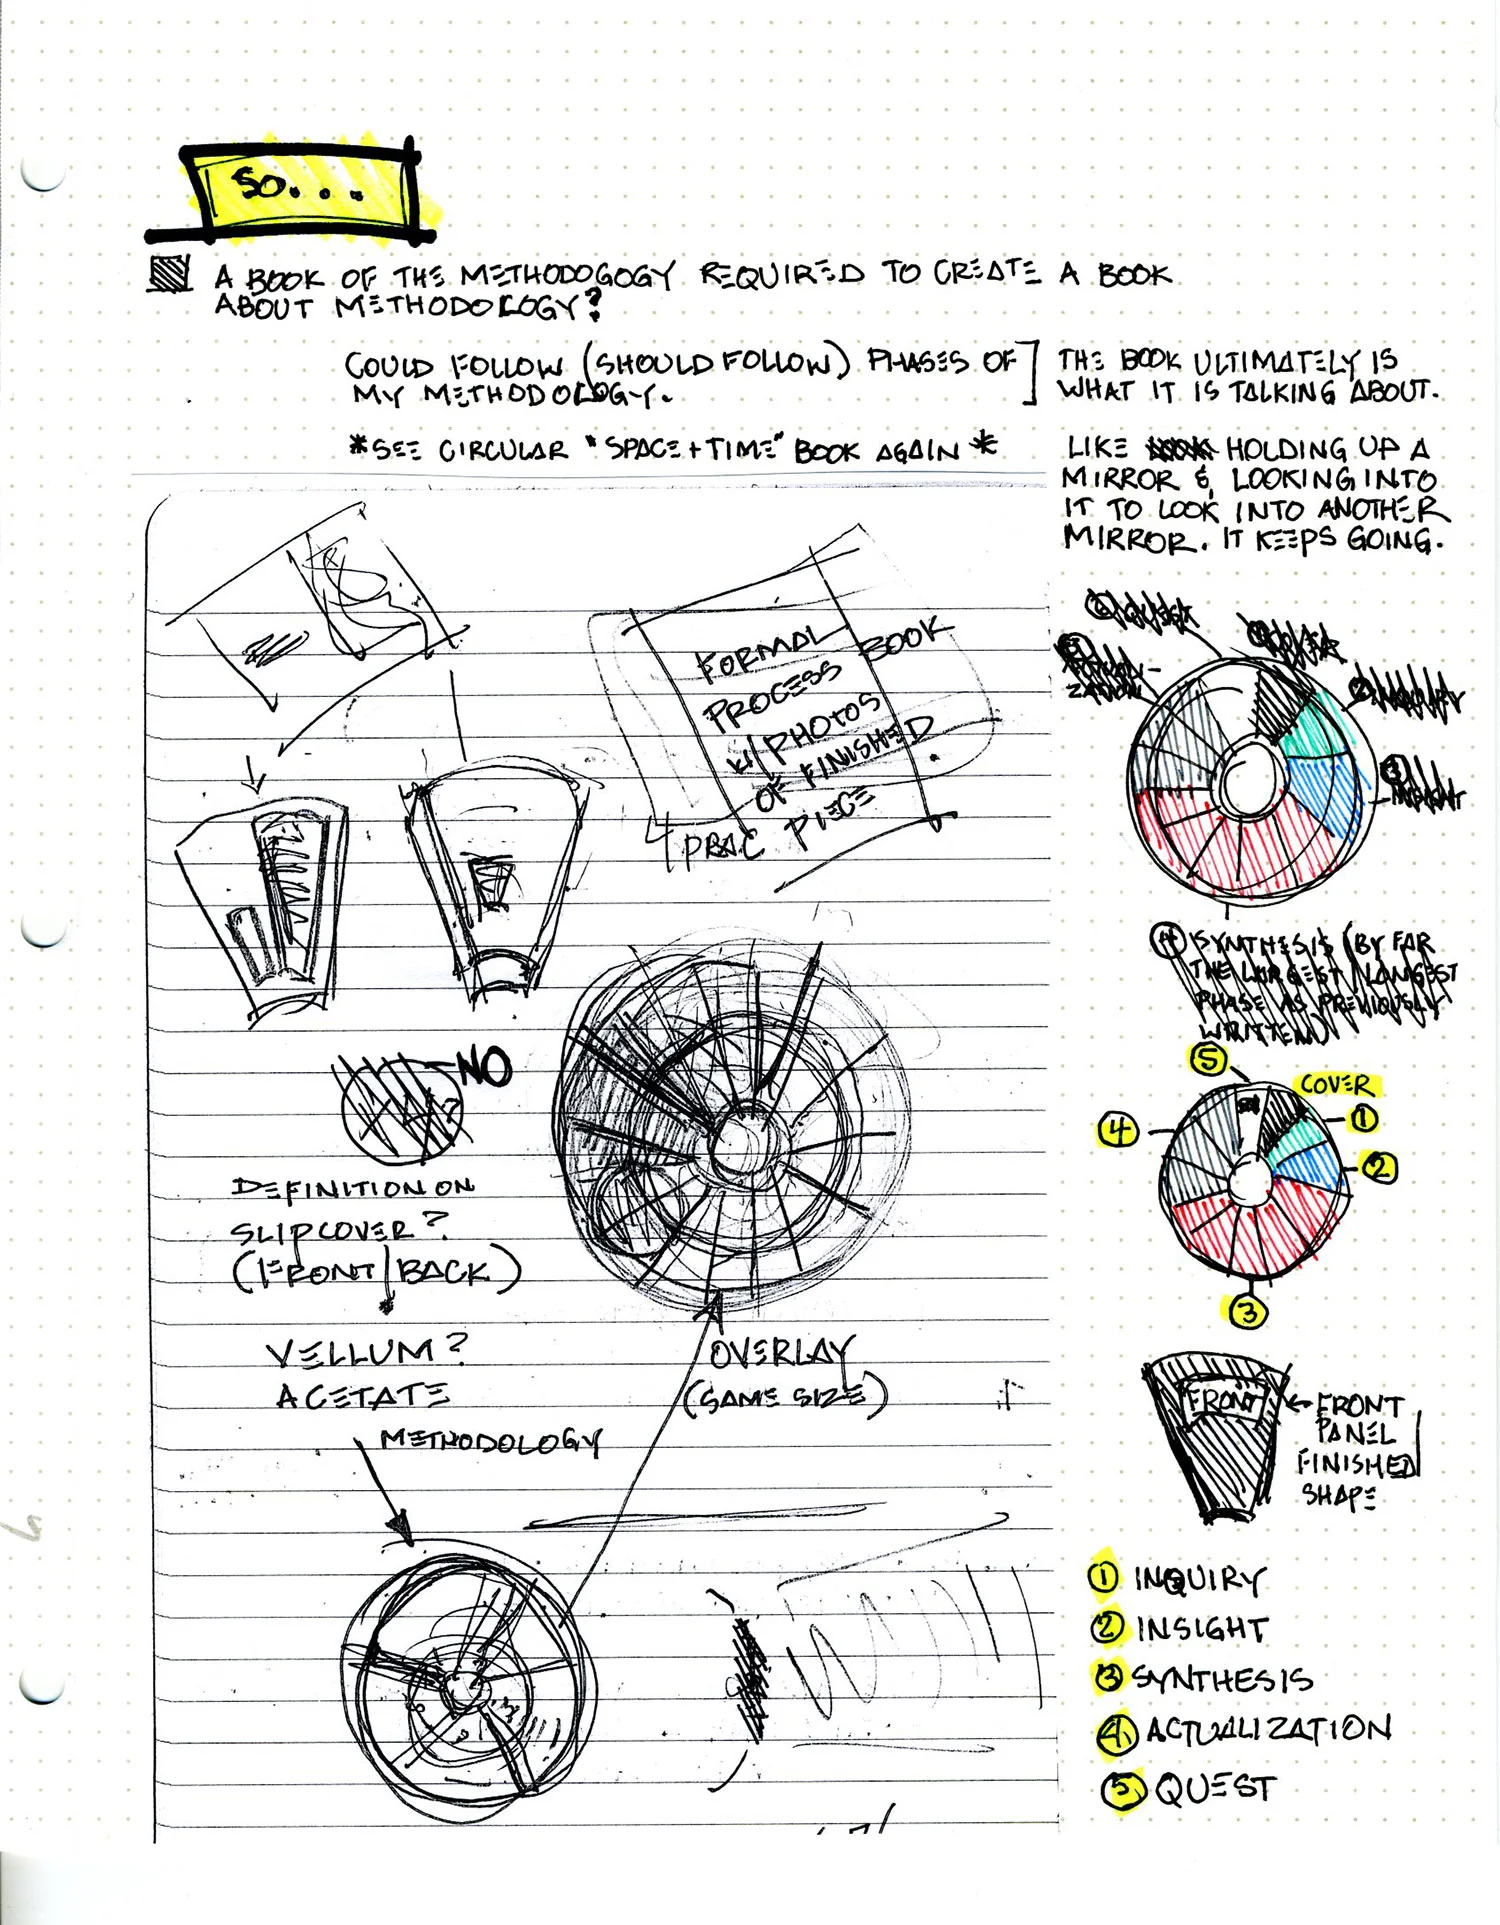 SO...
A BOOK OF THE METHODOGOGY REQUIRED TO CREATE A BOOK
ABOUT METHODOLOGY?
COULD FOLLOW (SHOULD FOLLOW) PHASES OF
MY METHODOLOGY.
THE BOOK ULTIMATELY IS
WHAT IT IS TALKING ABOUT.
*SEE CIRCULAR "SPACE+TIME" BOOK AGAIN*
LIKE HOLDING UP A
MIRROR & LOOKING INTO
IT TO LOOK INTO ANOTHER
MIRROR. IT KEEPS GOING.
FORMAL
PROCESS BOOK
W/PHOTOS
OF FINISHED
PRAC PIECE.
② INQUIRY
③ INSIGHT
④ SYNTHESIS (BY FAR
THE LARGEST/LONGEST
PHASE AS PREVIOUSLY
WRITTEN)
NO
DEFINITION ON
SLIPCOVER?
(FRONT/BACK)
VELLUM?
ACETATE
METHODOLOGY
OVERLAY
(SAME SIZE)
⑤
COVER
①
④
②
③
FRONT
FRONT
PANEL
FINISHED
SHAPE
① INQUIRY
② INSIGHT
③ SYNTHESIS
④ ACTUALIZATION
⑤ QUEST